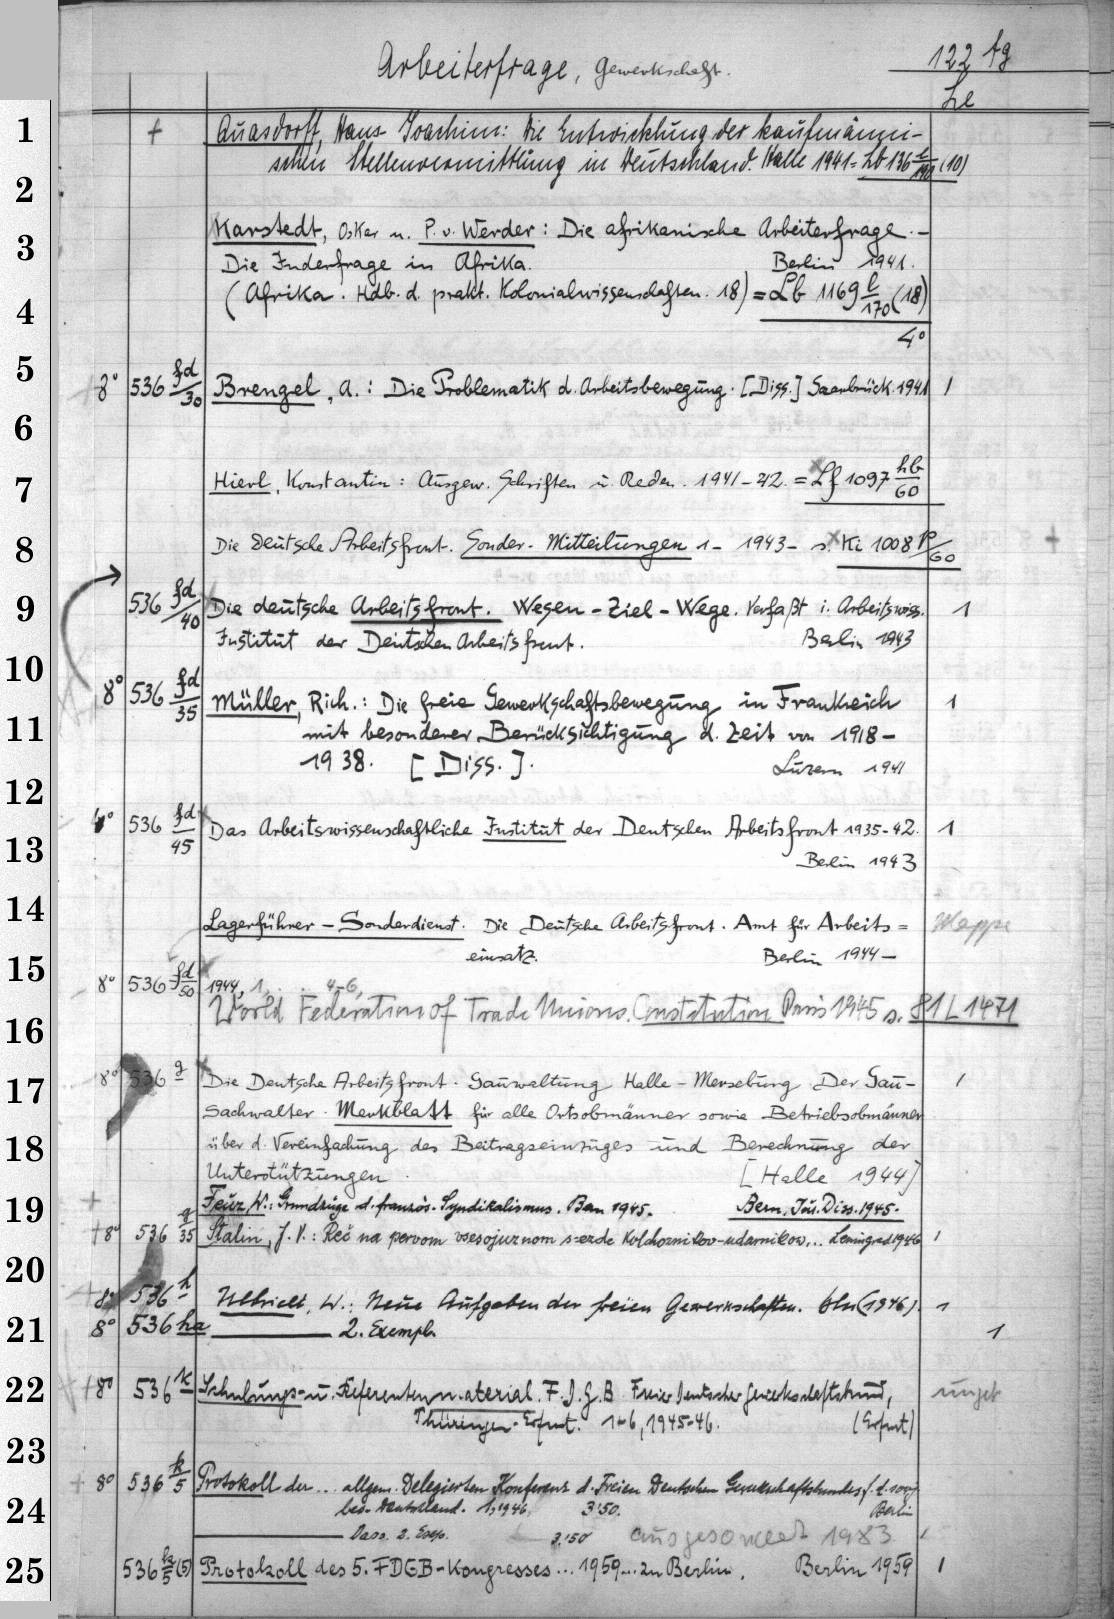 Arbeiterfrage, Gewerkschaft.
122 fg
Le
1 + Quasdorff, Hans-Joachim: Die Entwicklung der kaufmänni-
schen Stellenvermittlung in Deutschland. Halle 1941 = Lb 136 (10)
2
3 Karstedt, Oskar u. P. v. Werder: Die afrikanische Arbeiterfrage. –
Die Inderfrage in Afrika. Berlin 1941.
4 (Afrika. Hdb. d. prakt. Kolonialwissenschaften. 18) = Lb 1169 l/170 (18)
4°
5 8° 536 fd/30 Brengel, A.: Die Problematik d. Arbeitsbewegung. [Diss.] Saarbrück. 1941 1
6
7 Hierl, Konstantin: Ausgew. Schriften u. Reden. 1941–42. = Lf 1097 hb/60
8 Die Deutsche Arbeitsfront. Sonder-Mitteilungen 1– 1943– s. Ki 1008 p/60 +
9 536 fd/40 Die deutsche Arbeitsfront. Wesen – Ziel – Wege. Verfaßt i. Arbeitswiss. 1
Institut der Deutschen Arbeitsfront. Berlin 1943
10
8° 536 fd/35 Müller, Rich.: Die freie Gewerkschaftsbewegung in Frankreich 1
11 mit besonderer Berücksichtigung d. Zeit von 1918–
1938. [Diss.]. Luzern 1941
12
4° 536 fd/45 Das Arbeitswissenschaftliche Institut der Deutschen Arbeitsfront 1935-42. 1
13 Berlin 1943
14 Lagerführer – Sonderdienst. Die Deutsche Arbeitsfront. Amt für Arbeits= Mappe
einsatz. Berlin 1944 –
15 8° 536 fd/50 1944, 1, . . 4-6,
World Federation of Trade Unions. Constitution Paris 1945 s. 81 L 1471
16
17 8° 536 g Die Deutsche Arbeitsfront. Gauwaltung Halle – Merseburg Der Gau- 1
Sachwalter. Merkblatt für alle Ortsobmänner sowie Betriebsobmänner
18 über d. Vereinfachung des Beitragseinzuges und Berechnung der
Unterstützungen. [Halle 1944]
19 + Feur, W.: Grundzüge d. französ. Syndikalismus. Bern 1945. Bern, Jur. Diss. 1945.
+8° 536 g/35 Stalin, J. V.: Reč na pervom vsesojuznom s-ezde kolchoznikov-udarnikov... Leningrad 1946 1
20
+8° 536 h Ulbricht, W.: Neue Aufgaben der freien Gewerkschaften. Bln (1946). 1
21 8° 536 ha 2. Exempl. 1
22 +8° 536 k Schulungs- u. Referentenmaterial. F.D.G.B Freier Deutscher Gewerkschaftsbund, ungeb
Thüringen - Erfurt. 1-6, 1945-46. (Erfurt)
23
+ 8° 536 k/5 Protokoll der ... allgem. Delegierten Konferenz d. Freien Deutschen Gewerkschaftsbundes f.
24 Deutschland. 1, 1946 3'50. Berlin
Dass. 2. Exp. 3,'50 ausgesondert 1983
25 536 k/5 (5) Protokoll des 5. FDGB-Kongresses ... 1959 ... zu Berlin. Berlin 1959 1